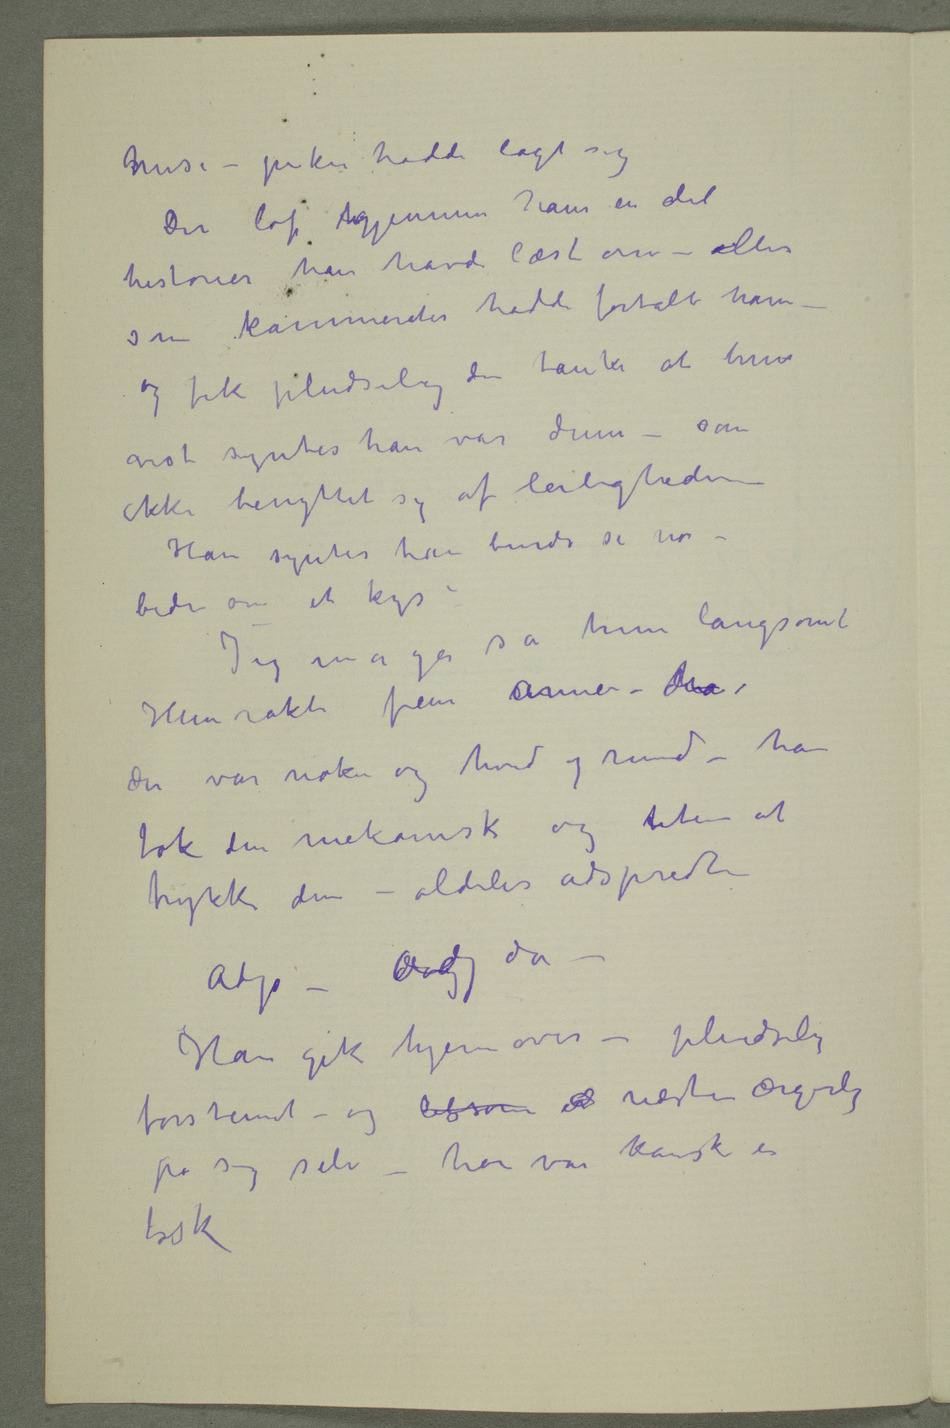 huse – piken hadde lagt sig
Der løp gjennem ham en del
historier han havde læst om – eller
som kammerater hadde fortalt ham –
og fik pludselig den tanke at hun
vist syntes han var dum – som
ikke benyttet sig af leiligheden
Han syntes han burde si no –
bede om et kys –
Jeg må gå sa hun langsomt
Hun rakte frem armen –
Den var nøken og hvid og rund – han
tok den mekanisk og uten at
trykke den – aldeles adspredt
Adjø – da –
Han gik hjemover – pludselig
forstemt – og næsten ærgerlig
på sig selv – han var kanske en
tosk